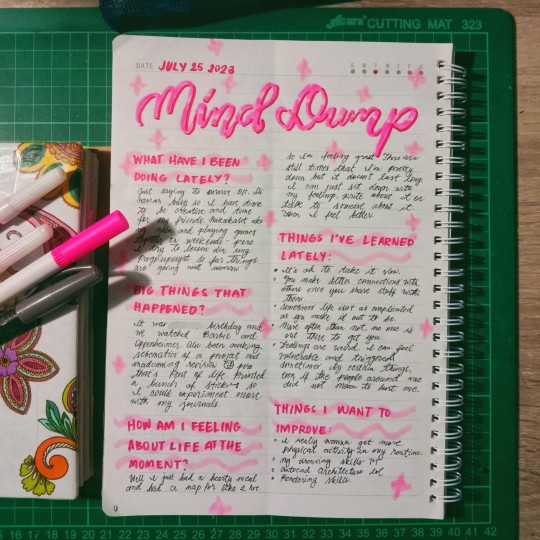 CUTTING MAT 323
DATE JULY 25 2023
S M T W T F S
Mind Dump
WHAT HAVE I BEEN
DOING LATELY?
Just trying to survive
to be creative and time
for my friends.
and playing games
on weekends
try to lessen
so far things
are going well
BIG THINGS THAT
HAPPENED?
It was birthday and
we watched Barbie and
Oppenheimer. Also been making
schematics of a project and
that's Part of life. Printed
a bunch of stickers so
I could experiment more
with my journals.
HOW AM I FEELING
ABOUT LIFE AT THE
MOMENT?
Well I just had a hearty meal
and had a nap for like 2 hrs
so I'm feeling great. There are
still times that I'm pretty
down but it doesn't last long.
I can just sit down with
my feelings, write about it or
talk to someone about it
I feel better.
THINGS I'VE LEARNED
LATELY:
• It's ok to take it slow.
• You make better connections with
others once you share stuff with
them.
• Sometimes life isn't as complicated
as you make it out to be.
• More often than not, no one is
out there to get you.
• Feelings are weird. I can feel
vulnerable and triggered
sometimes by certain things,
even if the people around me
did not mean to hurt me.
THINGS I WANT TO
IMPROVE:
• I really wanna get more
physical activity in my routine.
• my drawing skills
• autocad architecture lol
• Rendering skills